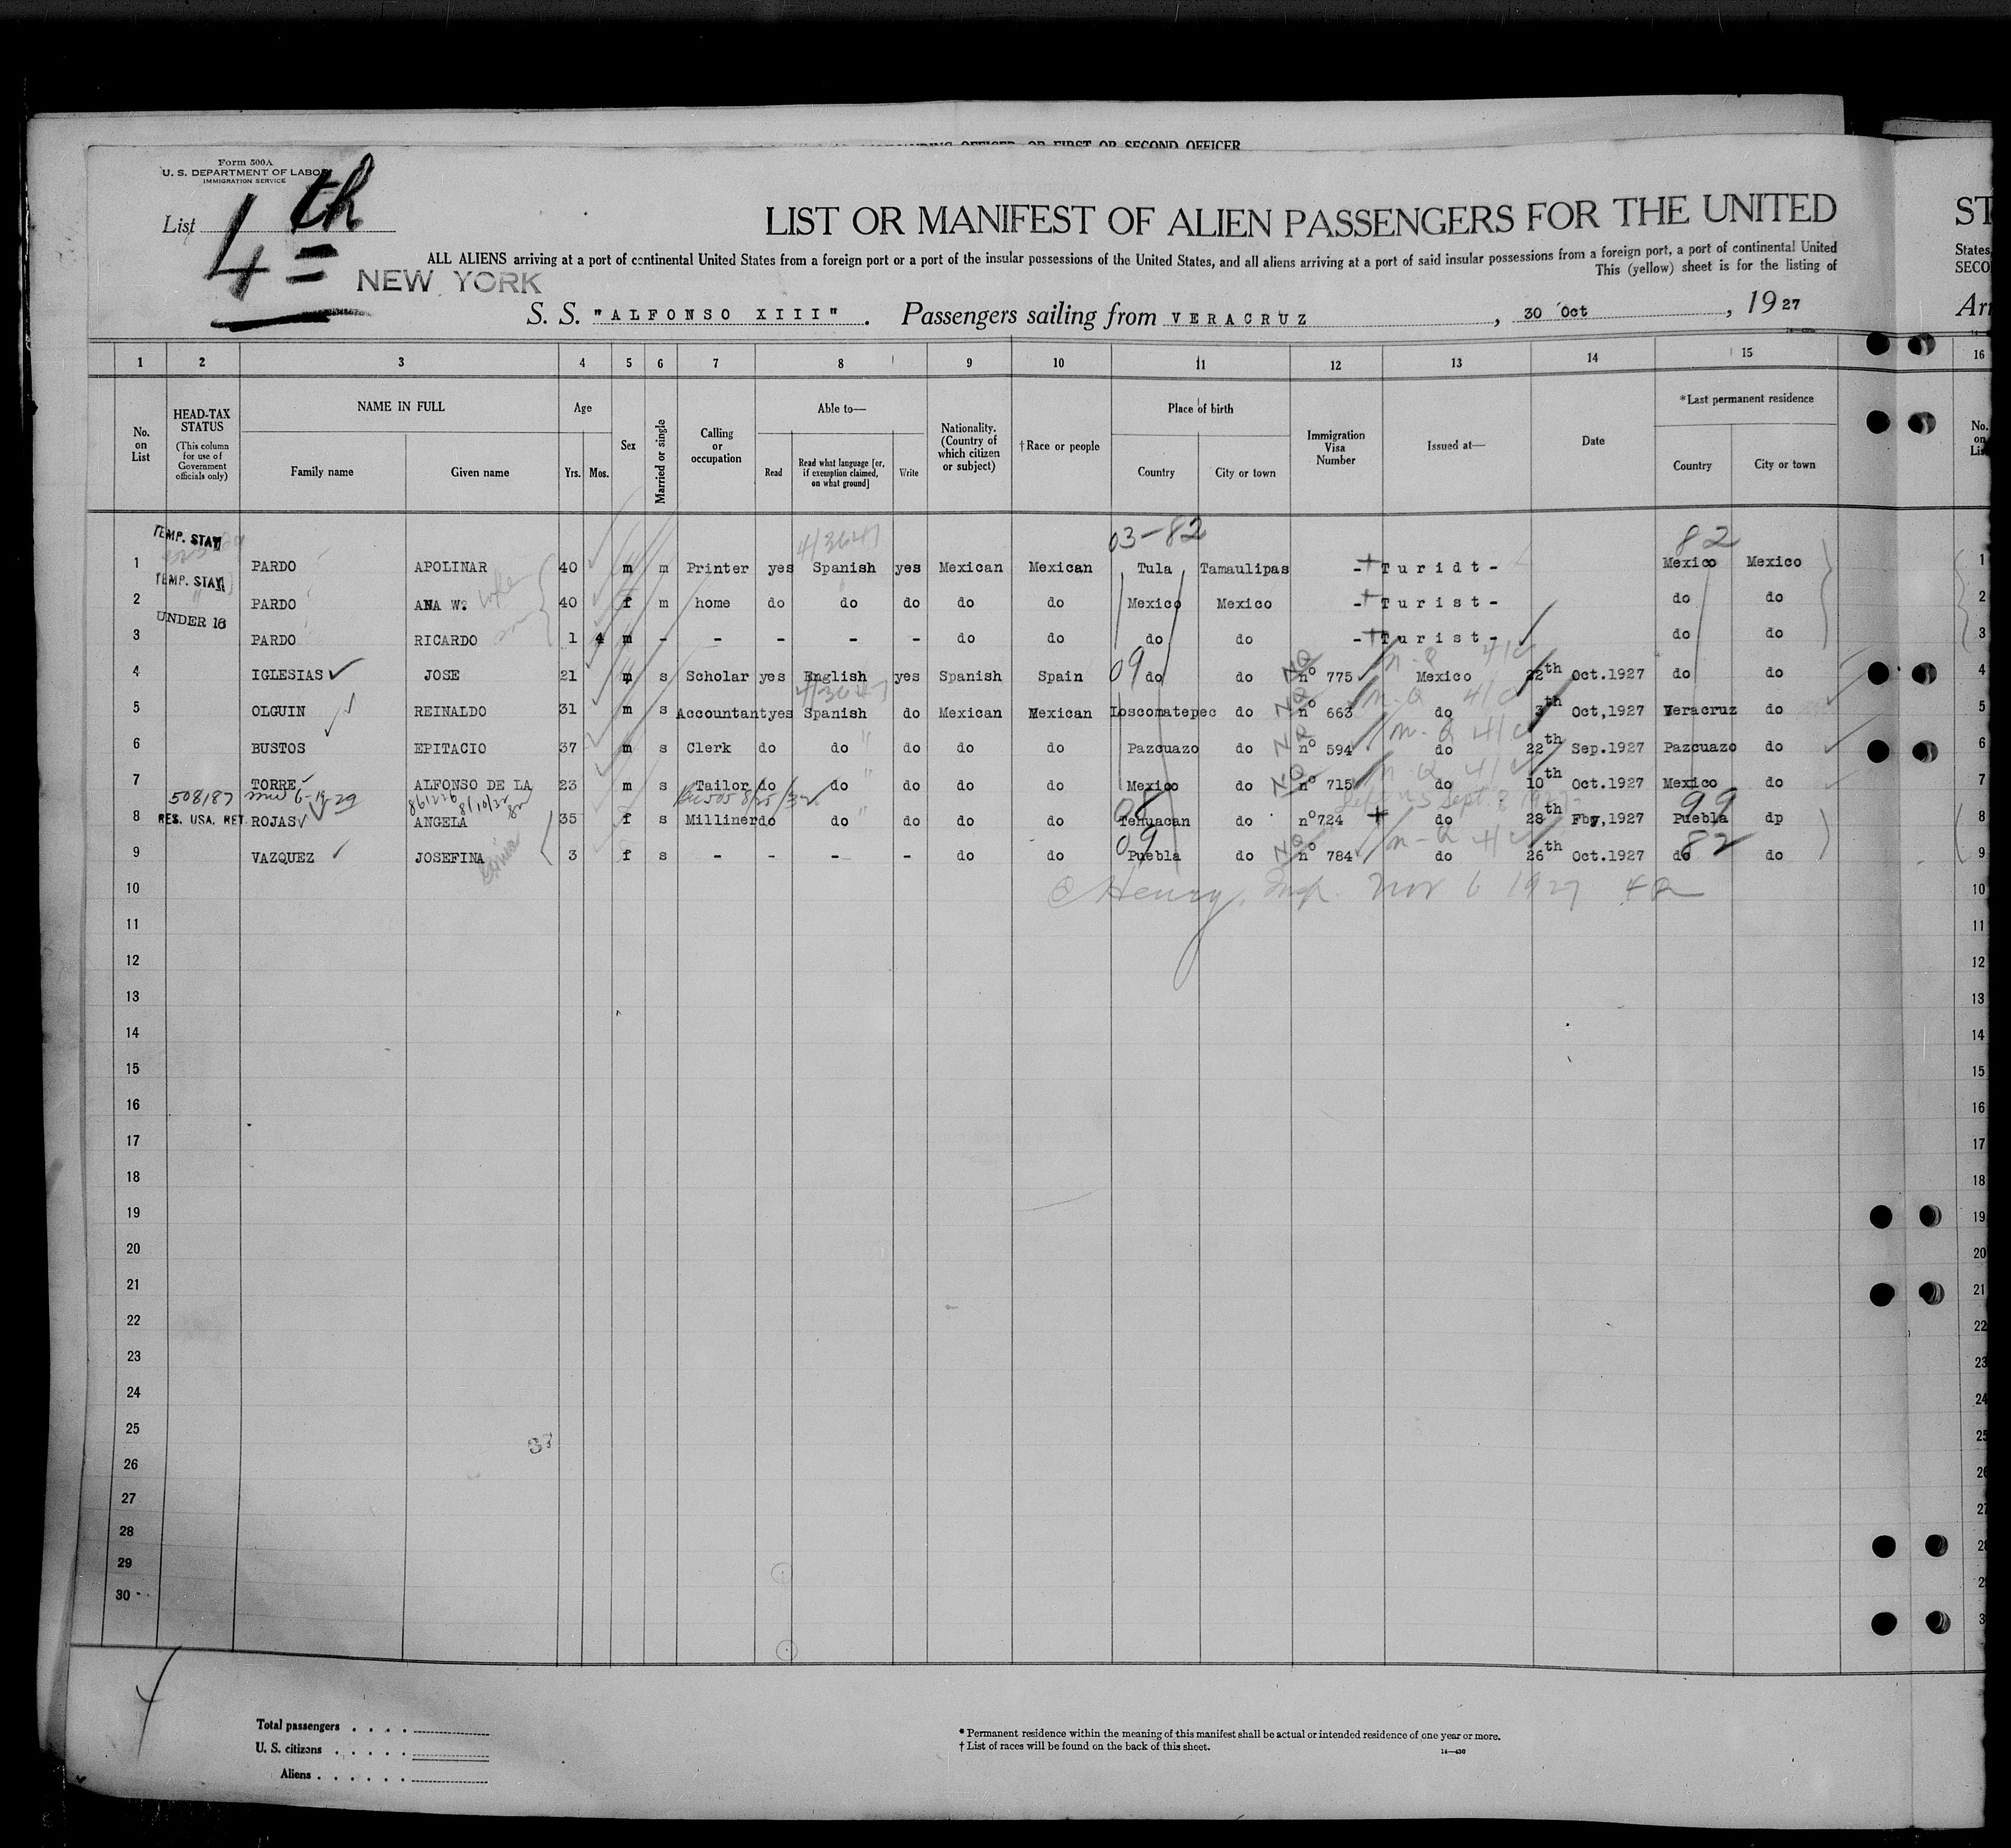 COMMANDING OFFICER, OR FIRST OR SECOND OFFICER
Form 500A
U. S. DEPARTMENT OF LABOR
IMMIGRATION SERVICE
List 4th
NEW YORK
LIST OR MANIFEST OF ALIEN PASSENGERS FOR THE UNITED
ST
ALL ALIENS arriving at a port of continental United States from a foreign port or a part of the insular possessions of the United States, and all aliens arriving at a port of said insular possessions from a foreign port, a port of continental United
States
This (yellow) sheet is for the listing of
SECO
S. S. "ALFONSO XIII". Passengers sailing from VERACRUZ, 30 Oct, 1927
Arr
1 2 3 4 5 6 7 8 9 10 11 12 13 14 15 16
No. on List
HEAD-TAX STATUS
(This column for use of Government officials only)
NAME IN FULL
Family name
Given name
Age
Yrs. Mos.
Sex
Married or single
Calling or occupation
Able to—
Read
Read what language [or, if exemption claimed, on what ground]
Write
Nationality. (Country of which citizen or subject)
†Race or people
Place of birth
Country
City or town
Immigration Visa Number
Issued at—
Date
*Last permanent residence
Country
City or town
No. on Lis
03-82 82
1 TEMP. STAY PARDO APOLINAR 40 m m Printer yes Spanish yes Mexican Mexican Tula Tamaulipas - Turidt- Mexico Mexico 1
2 TEMP. STAY PARDO ANA W. wife 40 f m home do do do do do Mexico Mexico - Turist- do do 2
3 UNDER 16 PARDO RICARDO son 1 4 m - - - - do do do do - Turist- do do 3
4 IGLESIAS JOSE 21 m s Scholar yes English yes Spanish Spain 09 do do nº 775 Mexico 22th Oct.1927 do do 4
5 OLGUIN REINALDO 31 m s Accountant yes Spanish do Mexican Mexican Ioscomatepec do nº 663 do 3th Oct,1927 Veracruz do 5
6 BUSTOS EPITACIO 37 m s Clerk do do do do do Pazcuazo do nº 594 do 22th Sep.1927 Pazcuazo do 6
7 TORRE ALFONSO DE LA 23 m s Tailor do do do do do Mexico do nº 715 do 10th Oct.1927 Mexico do 7
508187 6-19-29 861226 8/10/32
8 RES. USA. RET. ROJAS ANGELA 35 f s Milliner do do do do do Tehuacan do nº724 do 28th Fby,1927 99 Puebla dp 8
9 VAZQUEZ JOSEFINA 3 f s - - - - do do 09 Puebla do nº 784 do 26th Oct.1927 do 82 do 9
Henry, Insp. Nov 6 1927
10 10
11 11
12 12
13 13
14 14
15 15
16 16
17 17
18 18
19 19
20 20
21 21
22 22
23 23
24 24
25 25
26 26
27 27
28 28
29 29
30 30
4
Total passengers . . . .
U. S. citizens . . . . .
Aliens . . . . . .
* Permanent residence within the meaning of this manifest shall be actual or intended residence of one year or more.
† List of races will be found on the back of this sheet.
14—430